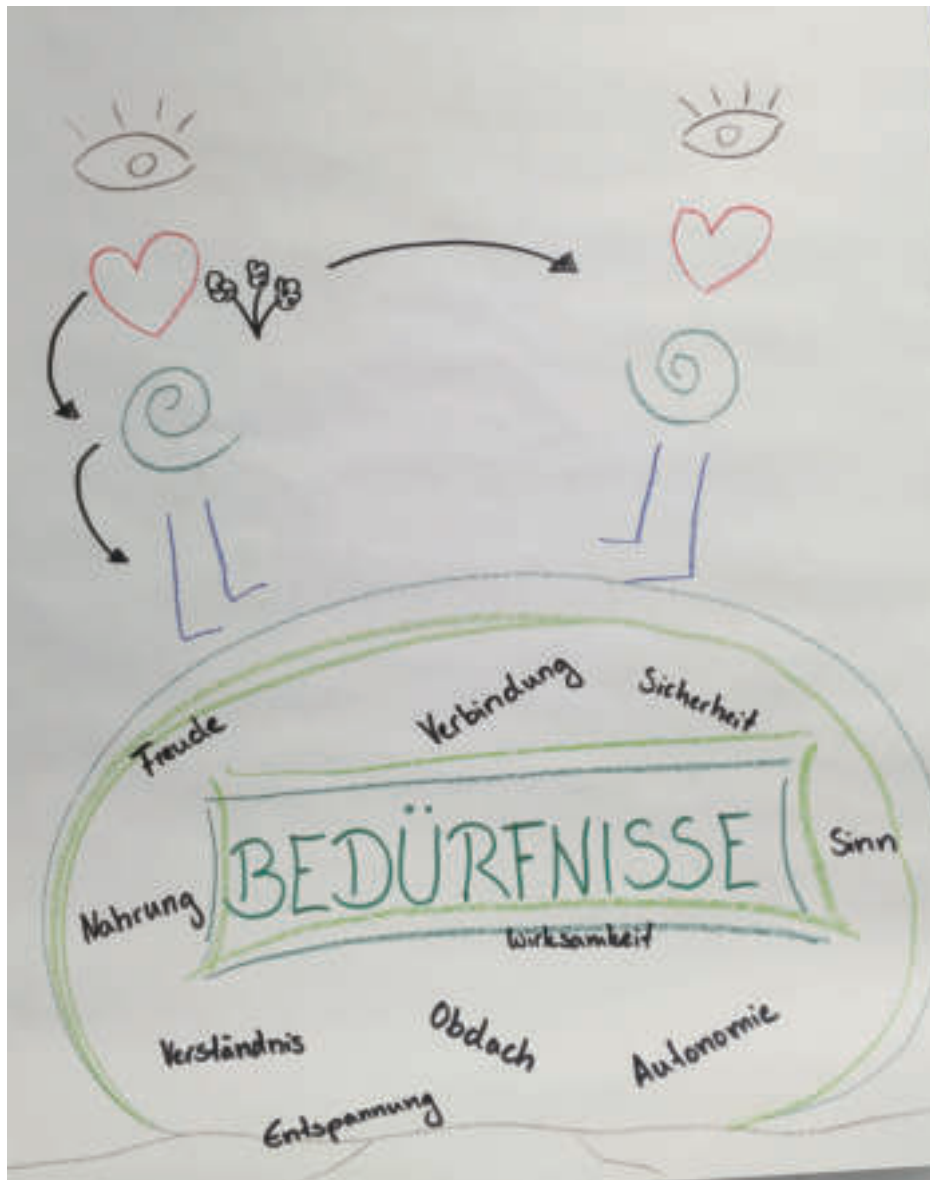 Freude
Verbindung
Sicherheit
BEDÜRFNISSE
Sinn
Nahrung
Wirksamkeit
Verständnis
Obdach
Autonomie
Entspannung